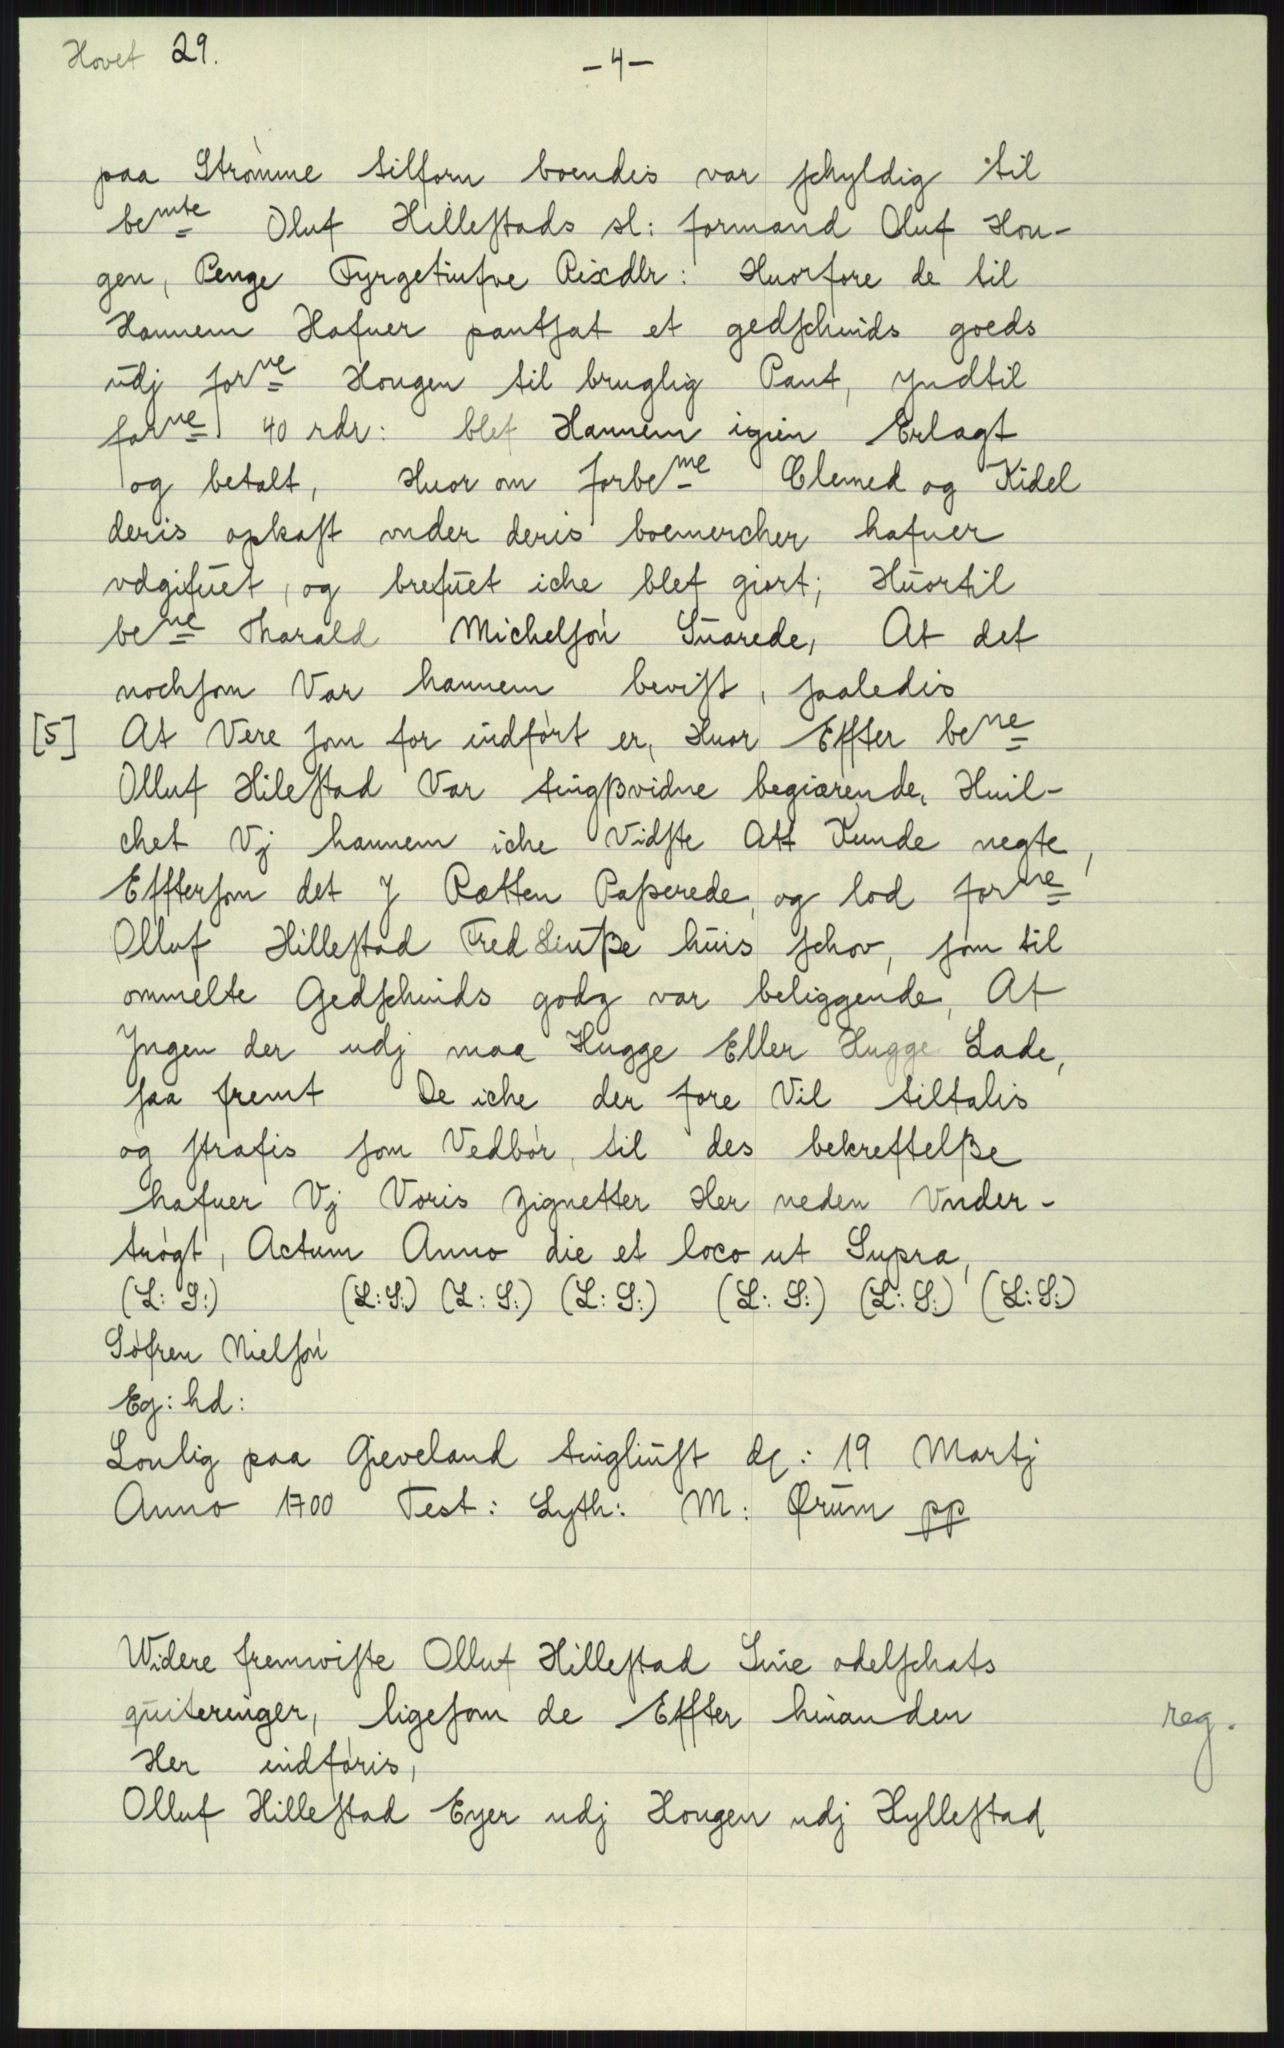 Hovet 29.
-4-
paa Strømme tilforn boendis var schyldig til
bemte Oluf Hillestads sl: formand Oluf Hou-
gen, Penge Fyrgetiufve Rixdlr: Huorfore de til
Hannem Hafuer pantsat et gedschinds goeds
udj forne Hougen til bruglig Pant, yndtil
forne 40 rdr: blef Hannem igien Erlagt
og betalt, Huor om forbeme Clemed og Kidel
deris opkast vnder deris boemercher hafuer
vdgifuet, og brefuet iche blef giort; Huortil
bene Tharald Michelsøn Suarede, At det
nochsom Var hannem bevist, saaledis
[5] At Vere som for indført er, Huor Effter bene
Olluf Hilestad Var tingßvidne begiærende, Huil-
chet Vj hannem iche Vidste Att Kunde negte,
Efftersom det J Rætten Passerede, og lod forne
Olluf Hillestad Fred Liuße huis schov, som til
ommelte Gedschinds godz var beliggende, At
Jngen der udj maa Hugge Eller Hugge Lade,
saa fremt De iche der fore Vil tiltalis
og strafis som Vedbør, til des bekreftelße
hafuer Vj Voris Zignetter Her neden Vnder-
trøgt, Actum Anno die et loco ut Supra,
(L: S:) (L:S:) (L: S:) (L: S:) (L: S:) (L: S:) (L:S:)
Søfren Nielsøn
Eg: hd:
Loulig paa Gieveland tingliust d: 19 Martj
Anno 1700 Test: Lyth: M: Ørum pp
Widere fremviste Olluf Hillestad Sine odelschats
quiteringer, ligesom de Effter hinanden reg.
Her indføris,
Olluf Hillestad Eyer udj Hougen udj Hyllestad